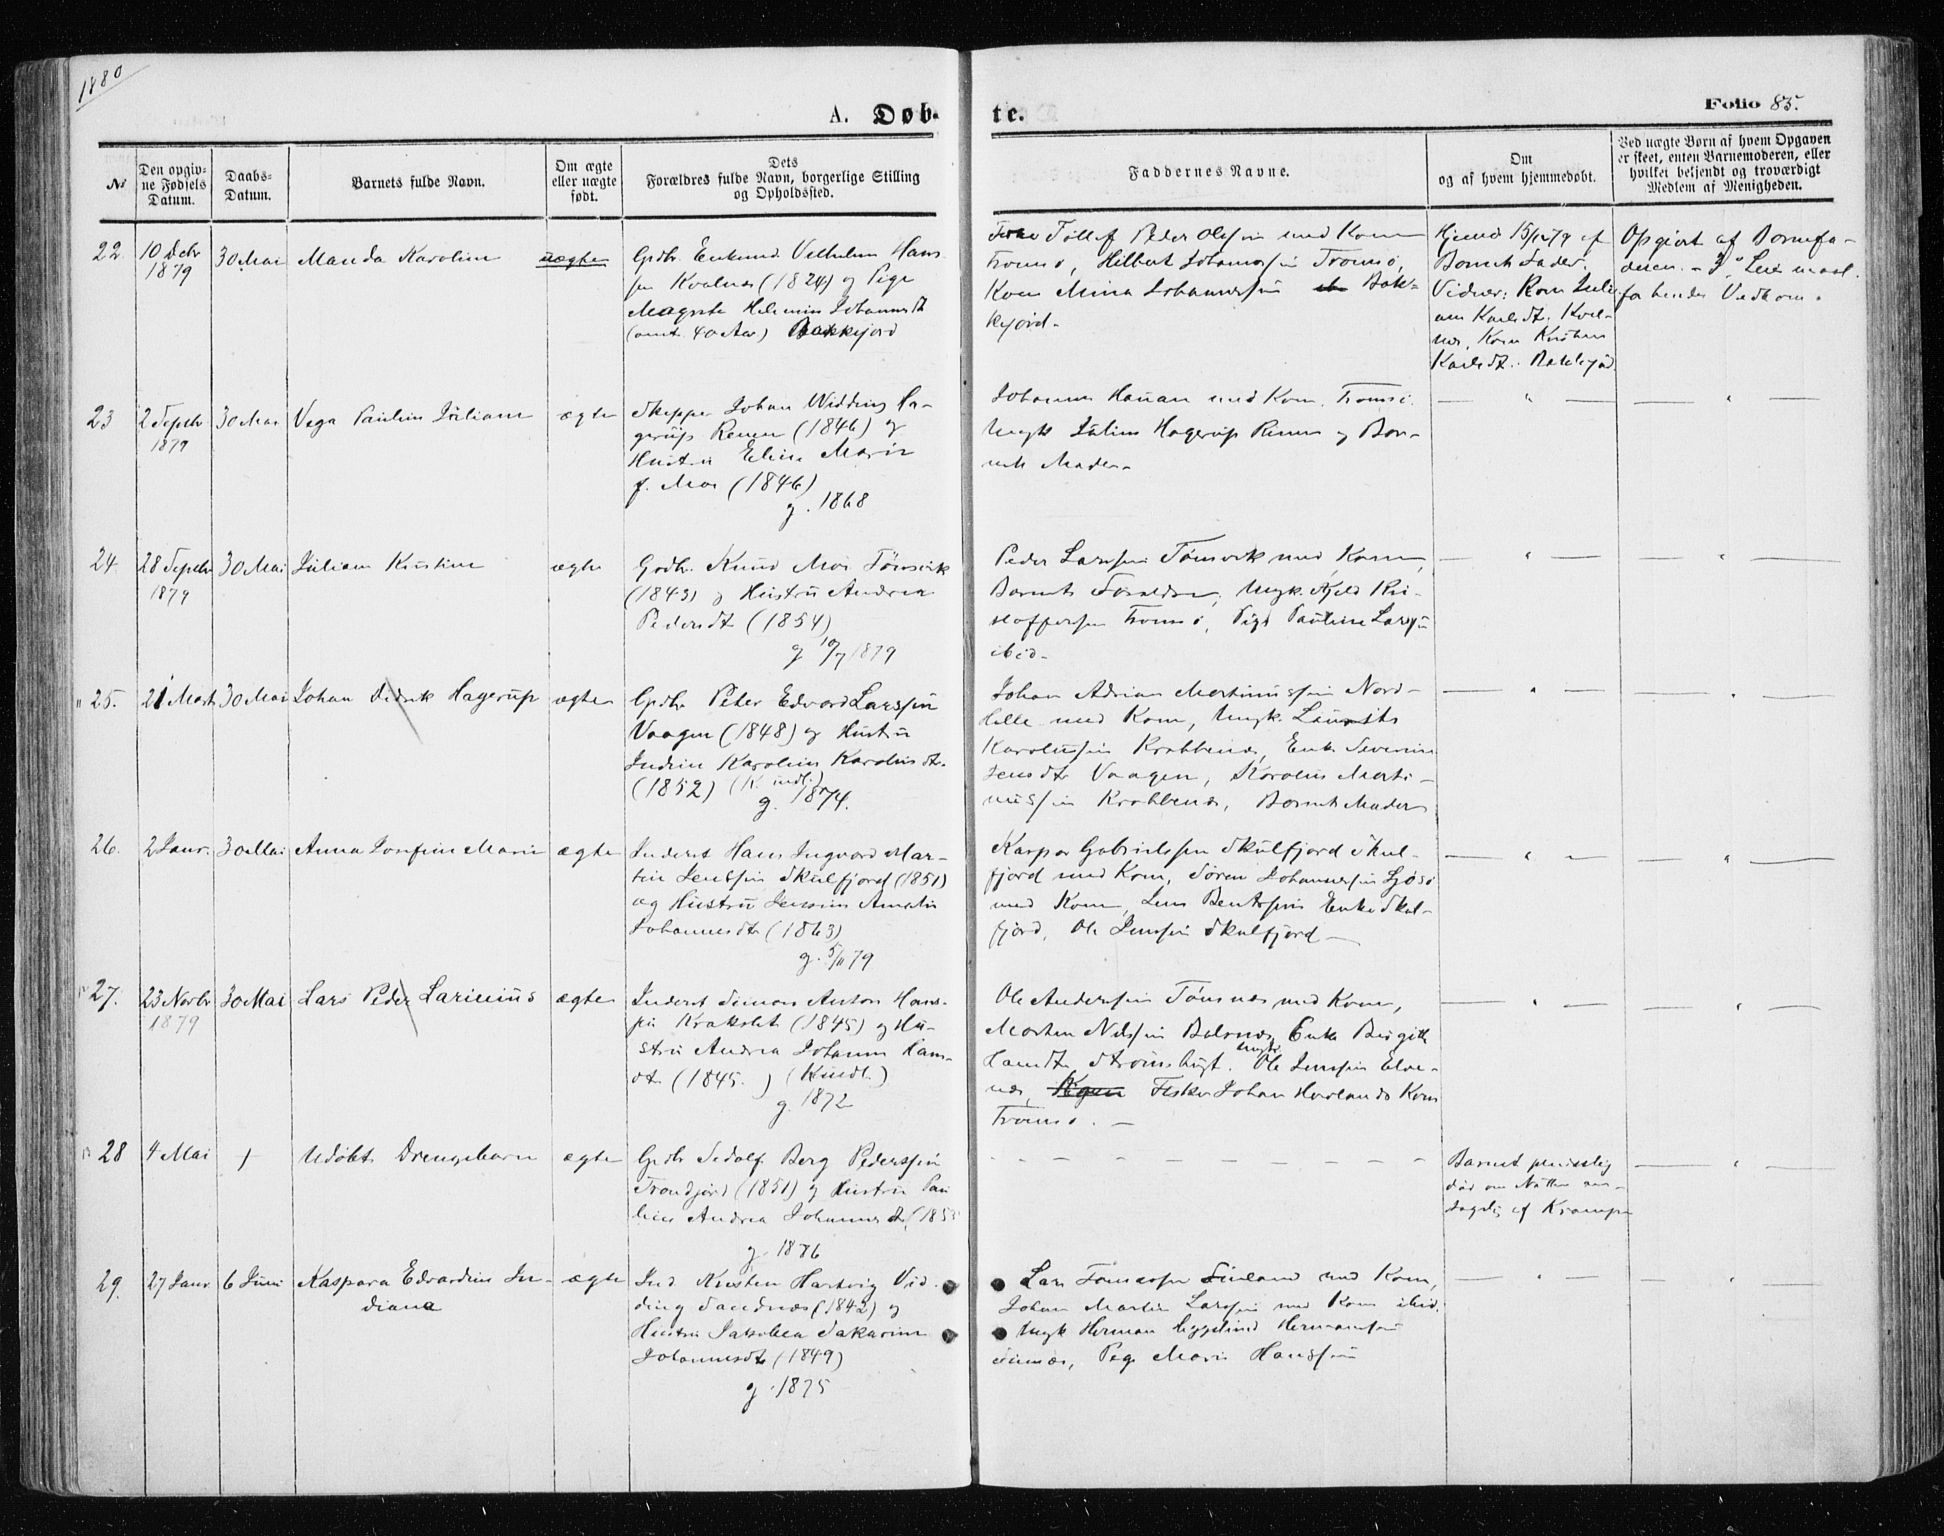 1880
A. Døbte.
Folio 85.
№
Den opgivne Fødsels Datum.
Daabs-Datum.
Barnets fulde Navn.
Om ægte eller uægte født.
Dets Forældres fulde Navn, borgerlige Stilling og Opholdssted.
Faddernes Navne.
Om og af hvem hjemmedøbt.
Ved uægte Børn af hvem Opgaven er skeet, enten Barnemoderen, eller hvilket bekjendt og troværdigt Medlem af Menigheden.
22. 10 Debr 1879 30 Mai Manda Karoline uægte
Gdbr. Enkemd. Vilhelm Hans-
sen Kvalnæs (1824) og Pige
Magrete Helmine Johannesdt
(omt. 40 Aar) Bakkejord
Peder Olsen med Kone
Tromsø, Hilbert Johannessen Tromsø,
Kone Mina Johannessen Bak-
kejord.
Hjemd. 15/12 79 af
Barnets Fader.
Vidner: Kone Juli-
ane Karlsdt. Kval-
næs, Kone
Karlsdt. Bakkejord
Opgivet af Barnefa-
deren.
23 2 Septbr 1879 30 Mai Vega Pauline Juliane ægte
Skipper Johan Widding Ha-
gerup Renen (1846) og
Hustru Eline Marie
f. Moe (1846)
g. 1868
Johannes Hauan med Kone. Tromsø.
Ungk. Julius Hagerup Renen og Bar-
nets Moder.
24 28 Septbr 1879 30 Mai Juliane Kristine ægte
Grdbr. Knud Moe Tønsvik
(1843) og Hustru Andrea
Pedersdt (1854)
g 10/7 1879
Peder Larssen Tønsvik med Kone,
Barnets Forældre, Ungk. Kjeld Kri-
stoffersen Tromsø, Pige Pauline Larssen
ibid.
25. 21 Marts 30 Mai Johan Didrik Hagerup ægte
Gdbr Peter Edvard Larssen
Vaagen (1848) og Hustru
Indrine Karoline Karolusdt.
(1852) (K. indl.)
g. 1874.
Johan Adrian Martinussen Nord-
Helle med Kone, Ungk. Laurits
Karolussen Krabbenæs, Enke Severine
Jensdtr Vaagen, Karolus Marti-
nussen Krabbenæs, Barnets Moder
26. 2 Janr. 30 Mai Anna Josefine Marie ægte
Inderst Hans Ingvard Mar-
tin Jenssen Skulfjord (1851)
og Hustru Jensine Amalie
Johannesdt (1863)
g. 5/11 79
Kaspar Gabrielssen Skulfjord Skul-
fjord med Kone, Søren Johannessen
med Kone, Lene Bentssens Enke Skul-
fjord, Ole Jenssen Skulfjord
27. 23 Novbr 1879 30 Mai Lars Peder Larinius ægte
Inderst Simon Anton Hans-
sen Krakslet (1845) og Hu-
stru Andrea Johanne Hans-
dt. (1845.) (Kindl.)
g. 1872
Ole Anderssen Tønsnæs med Kone,
Morten Nilssen Balsnæs, Enke Birgitte
Hansdt. Strømsbugt. Ungk. Ole Jenssen Elve-
næs, Fisker Johan Hovlands Kone
Tromsø.
28 4 Mai + Udøbt Drengebarn ægte
Gdbr Sedolf Berg Pederssen
Trondjord (1851) og Hustru Pau-
line Andrea Johannesdt. (185
g. 1876
Barnet pludselig
død om Natten
af Krampe
29. 27 Janr 6 Juni Kaspara Edvardine In-
diana ægte
Ind Kristen Hartvig Vid-
ding Sandnæs (1842) og
Hustru Jakobea Sakarine
Johannesdt (1849)
g. 1875
Lars med Kone,
Johan Martin Larssen med Kone ibid.
Ungk Herman Hermanssen
Pige Marie Hanssen